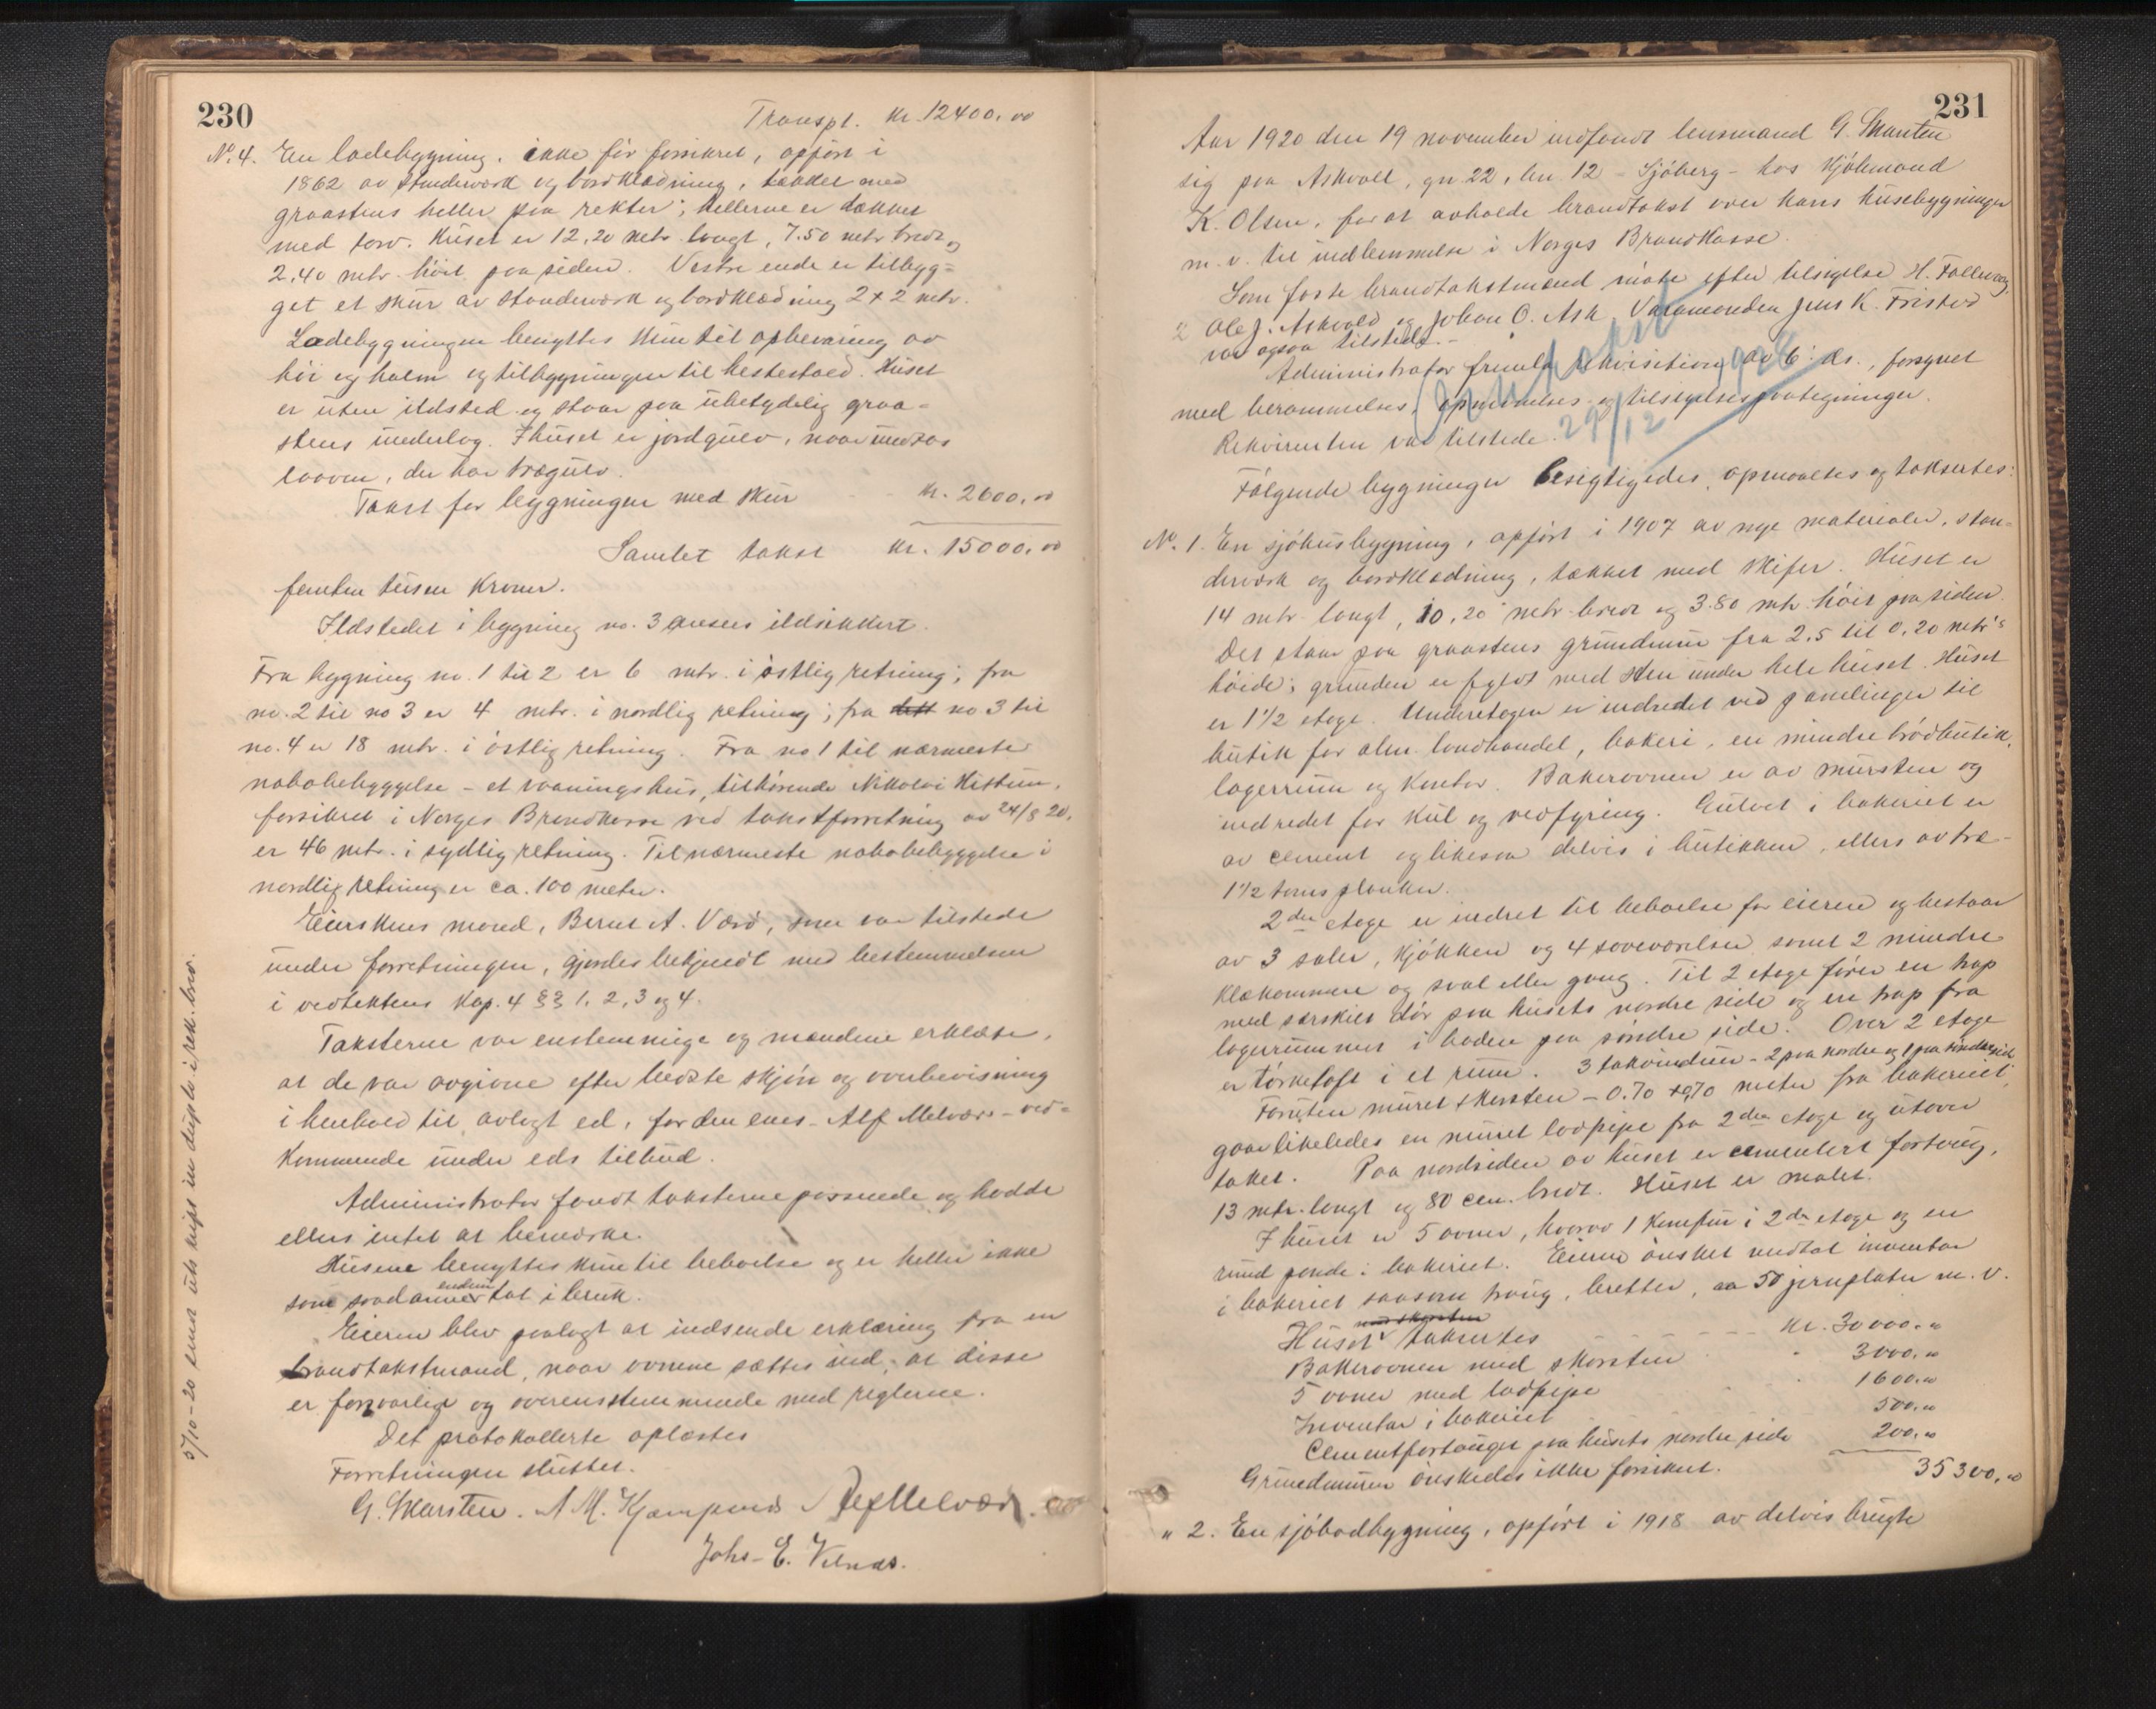 230
Transpt. kr. 12400.00
No. 4. En ladebygning. ikke før forsikret, opført i
1862 av stenderværk og bordklædning, tækket med
graastens heller paa rekter; hellerne er dækket
med torv. Huset er 12,20 metr langt, 7.50 metr bredt og
2.40 mtr. høit paa siden. Vestre ende er tilbyg-
get et skur av stenderværk og bordklædning 2 x 2 mtr.
Ladebygningen benyttes kun til opbevaring av
høi og halm og tilbygningen til hestestald. Huset
er uten ildsted og staar paa ubetydelig graa-
stens underlag. I huset er jordgulv, naar undtas
laaven, der har trægulv.
Takst for bygningen med skur kr. 2600.00
Samlet takst kr. 15000.00
femten tusen kroner.
Ildstedet i bygning no. 3 ansees ildsikkert.
Fra bygning no. 1 til 2 er 6 mtr. i østlig retning; fra
no. 2 til no 3 er 4 mtr. i nordlig retning; fra no 3 til
no. 4 er 18 mtr. i østlig retning. Fra no 1 til nærmeste
nabobebyggelse - et vaaningshus, tilhørende Nikolai Hittun,
forsikret i Norges Brandkasse ved takstforretning av 24/8 20,
er 46 mtr. i sydlig retning. Til nærmeste nabobebyggelse i
nordlig retning er ca. 100 meter.
Eierskens mand, Bernt A. Værø, som var tilstede
under forretningen, gjordes bekjendt med bestemmelsen
i vedtektens kap. 4 §§ 1, 2, 3 og 4.
Taksterne var enstemmige og mændene erklærte,
at de var avgivne efter bedste skjøn og overbevisning
i henhold til avlagt ed, for den enes - Alf Melvær - ved-
kommende under eds tilbud.
Administrator fandt taksterne passende og hadde
ellers intet at bemerke.
Husene benyttes kun til beboelse og er heller ikke
som saadanne endnu tat i bruk.
Eieren blev paalagt at indsende erklæring fra en
brandtakstmand, naar ovnene sættes ind, at disse
er forsvarlige og overensstemmende med reglerne.
Det protokollerte oplæstes
Forretningen sluttet.
G. Skarsten. A M. Kjempenes Alf Melvær.
Johs. E. Vilnæs.
5/10-20 sendt utskrift in duplo i rek. brev.
231
Aar 1920 den 19 november indfandt lensmand G. Skarsten
sig paa Askvoll, gn. 22, bn. 12 - Sjøberg - hos kjøbmand
K. Olsen, for at avholde brandtakst over hans husebygninger
m. v. til indlemmelse i Norges Brandkasse.
Som faste brandtakstmænd møtte efter tilsigelse H. Folkevog,
Ole J. Askvold og Johan O. Ask. Varamanden Jens K. Fristad
var ogsaa tilstede.-
Administrator fremla rekvisition av 6. ds., forsynet
med berammelses, opnævnelses og tilsigelsespaategninger.
Rekvirenten var tilstede.
29/12 1926
Følgende bygninger besigtigedes, opmaaltes og takseretes:
No. 1. En sjøhusbygning, opført i 1907 av nye materialer, sten-
derværk og bordklædning, tækket med skifer. Huset er
14 mtr langt, 10,20 metr bredt og 3.80 mtr høit paa siden.
Det staar paa graastens grundmur fra 2.5 til 0.20 metr's
høide; grunden er fyldt med sten under hele huset. Huset
er 1 1/2 etage. Underetagen er indredet ved panelinger til
butik for alm. landhandel, bakeri, en mindre brødbutik,
lagerrum og kontor. Bakerovnen er av mursten og
indredet for kul og vedfyring. Gulvet i bakeriet er
av cement og likesaa delvis i butikken, ellers av træ -
1 1/2 toms planker.
2den etage er indret til beboelse for eieren og bestaar
av 3 saler, kjøkken og 4 soveværelser samt 2 mindre
klækommere og sval eller gang. Til 2 etage fører en trap
med særskilt dør paa husets nordre side og en trap fra
lagerrummet i boden paa søndre side. Over 2 etage
er tørkeloft i et rum. 3 takvinduer - 2 paa nordre og 1 paa søndre side
Foruten muret skorsten - 0.70 x 0,70 meter fra bakeriet,
gaar likeledes en muret lodpipe fra 2den etage og utover
taket. Paa nordsiden av huset er cementert fortaug,
13 mtr. langt og 80 cm. bredt. Huset er malet.
I huset er 5 ovner, hvorav 1 komfur i 2den etage og en
rund ovn i bakeriet. Eieren ønsket medtat inventar
i bakeriet saasom traug, bretter, 50 jernplater m. v.
Huset taksertes kr. 30000.00
Bakerovnen med skorsten " 3000.00
5 ovner med lodpipe " 1600.00
Inventar i bakeriet 500.00
Cementfortauget paa husets nordre side 200.00
Grundmuren ønskedes ikke forsikret. 35300.00
" 2. En sjøbodbygning, opført i 1918 av delvis brugte